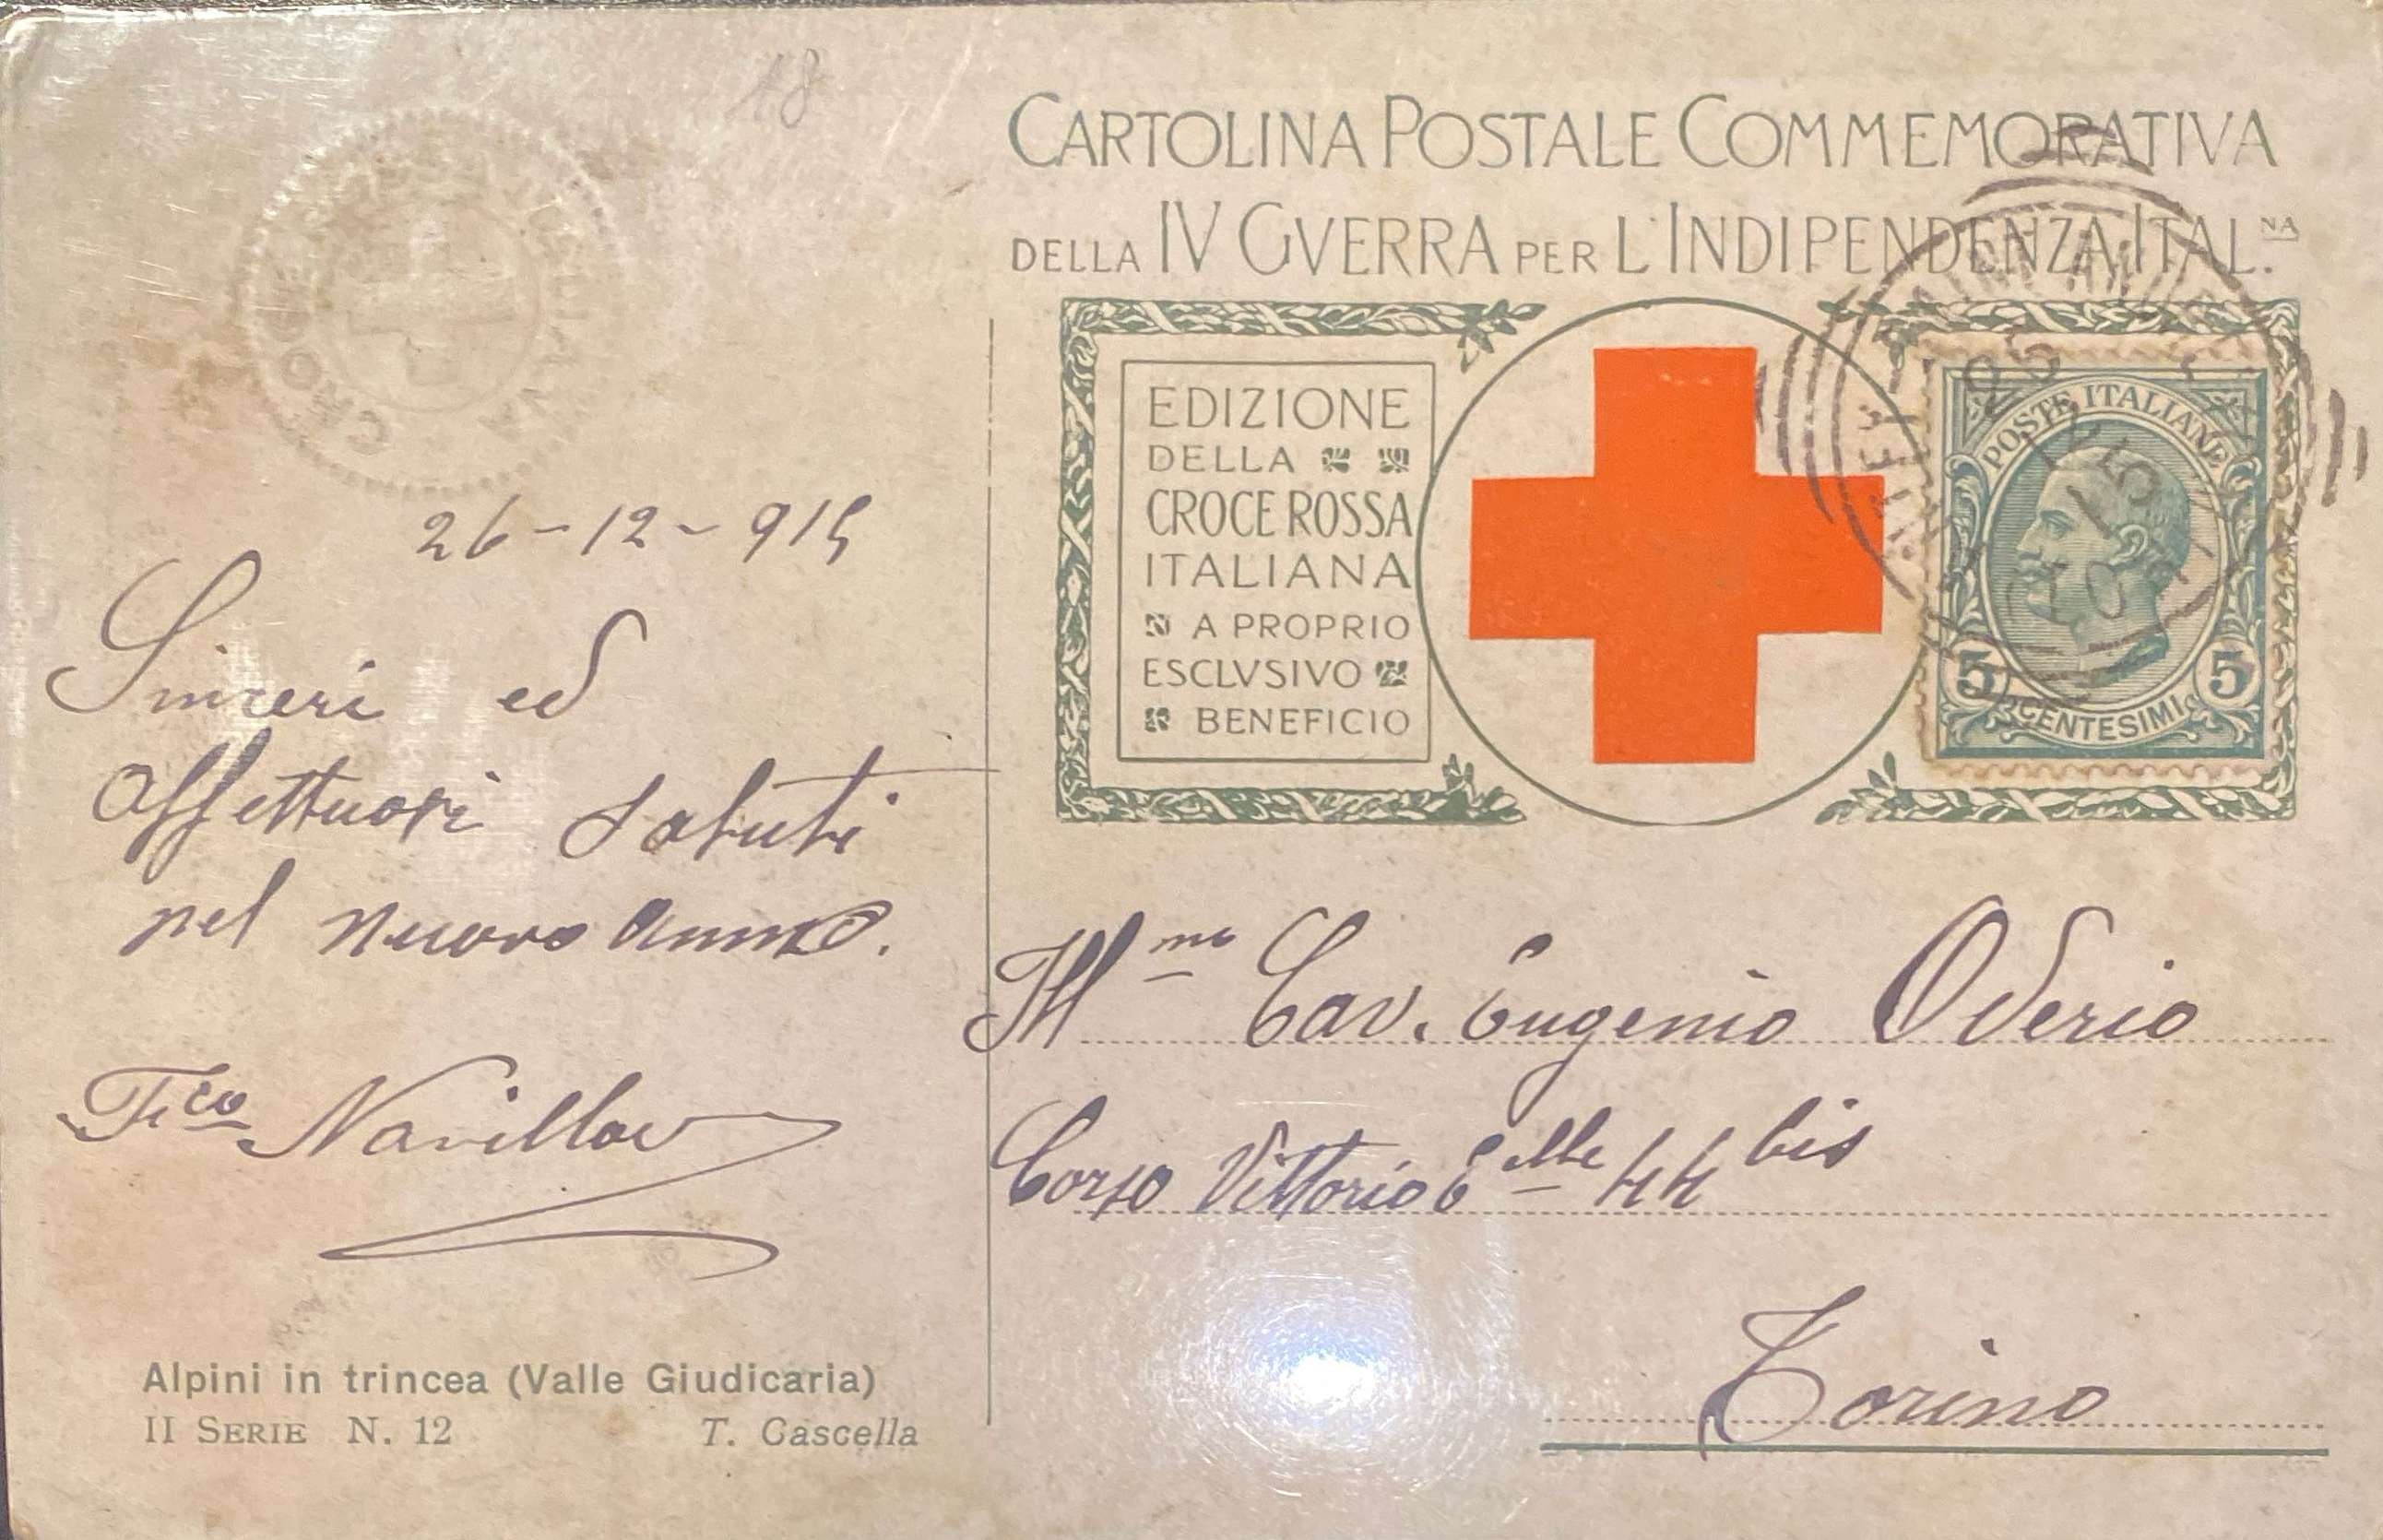 18
CROCE ROSSA ITALIANA
26-12-915
Sinceri ed
affettuosi saluti
nel nuovo anno.
Alpini in trincea (Valle Giudicaria)
II SERIE N. 12 T. Cascella
CARTOLINA POSTALE COMMEMORATIVA
DELLA IV GVERRA PER L'INDIPENDENZA ITAL.NA
EDIZIONE
DELLA
CROCE ROSSA
ITALIANA
A PROPRIO
ESCLVSIVO
BENEFICIO
POSTE ITALIANE
5 CENTESIMI 5
Ill.mo Cav. Eugenio Oderio
Corso Vittorio Elle 44 bis
Torino